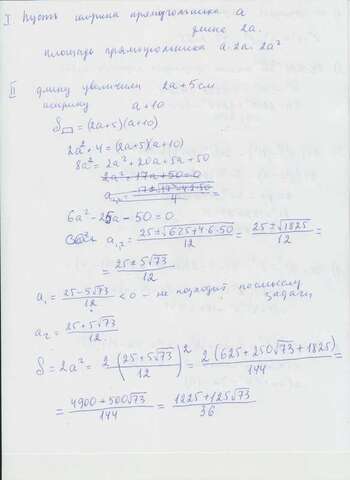 I Пусть ширина прямоугольника a
длина 2a.
площадь прямоугольника a·2a = 2a²
II длину увеличили 2a+5см
ширину a+10
S▭ = (2a+5)(a+10)
2a²·4 = (2a+5)(a+10)
8a² = 2a² + 20a + 5a + 50
2a² + 17a + 50 = 0
6a² - 25a - 50 = 0
a₁,₂ = (25 ± √(625+4·6·50))/12 = (25 ± √1825)/12 =
= (25 ± 5√73)/12
a₁ = (25 - 5√73)/12 < 0 - не подходит по смыслу
задачи
a₂ = (25 + 5√73)/12
S = 2a² = 2((25 + 5√73)/12)² = 2(625 + 250√73 + 1825)/144 =
= (4900 + 500√73)/144 = (1225 + 125√73)/36